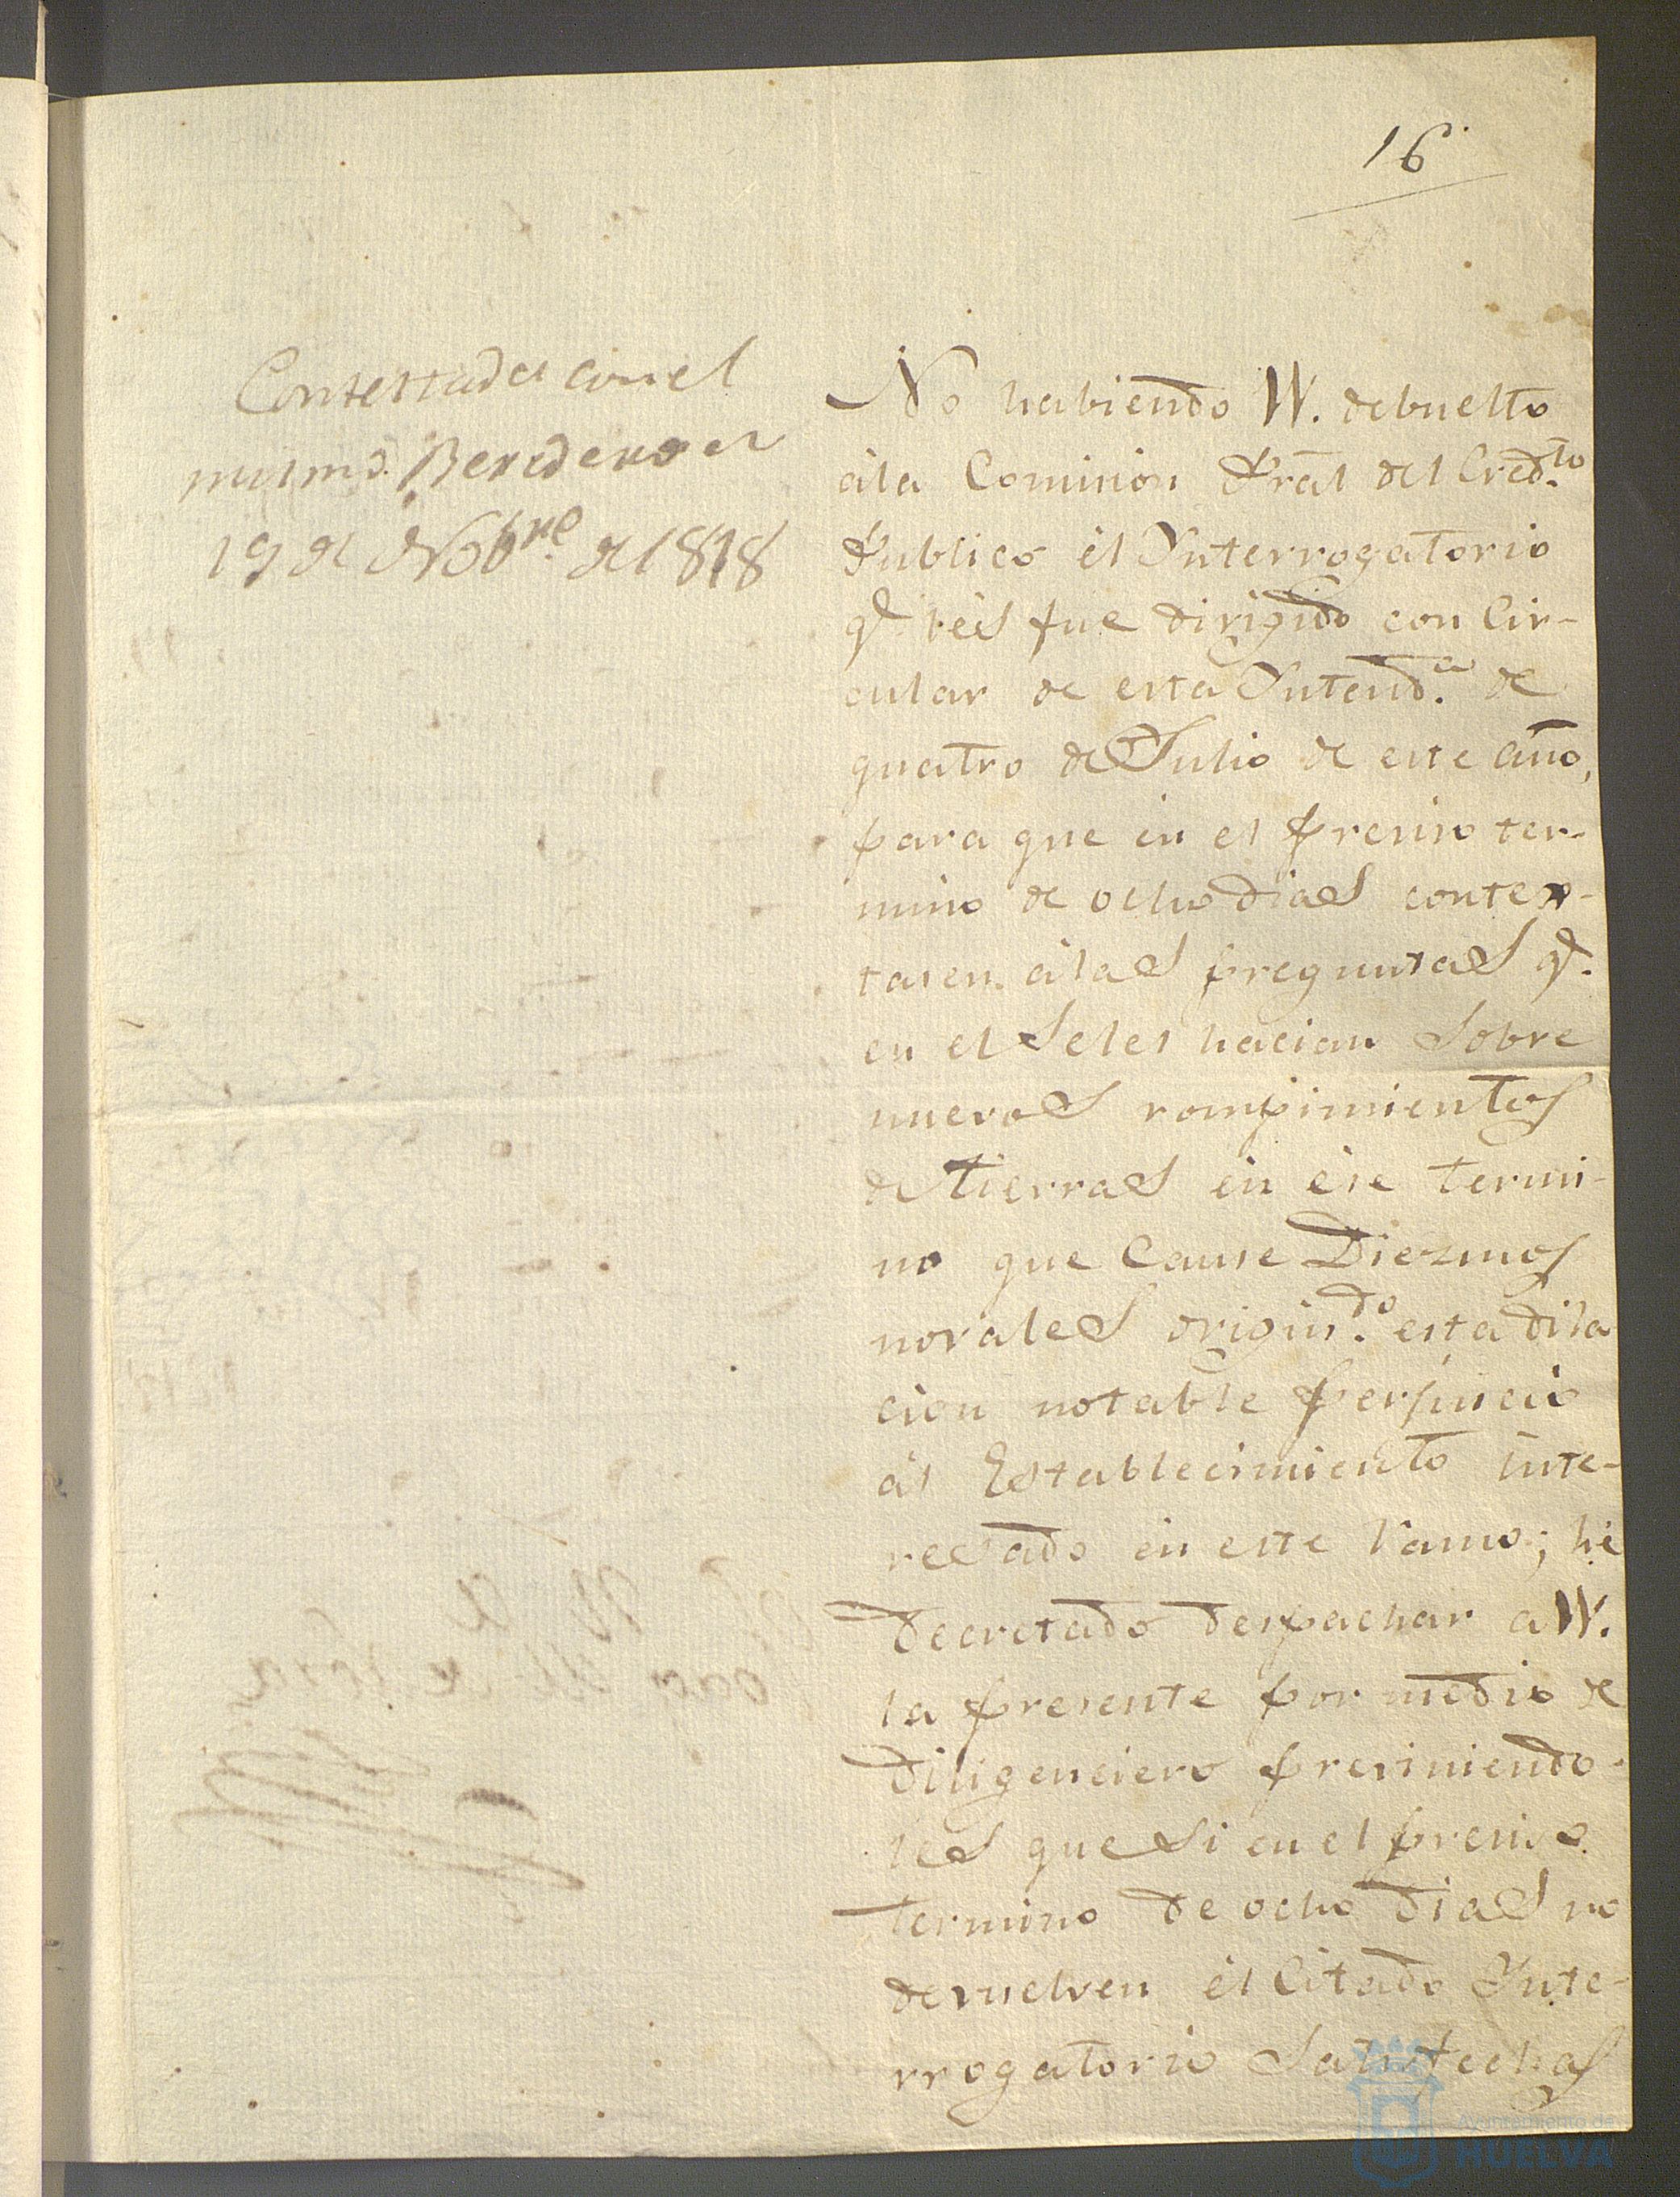 16
Contestada con el
mismo Beredero en
19 de Nobre de 1818
No habiendo VV. debuelto
á la Comision Pral del Credto
Publico él Ynterrogatorio
q.e les fue dirigido con Cir-
cular de esta Yntenda de
quatro de Julio de este año,
para que en el preciso ter-
mino de ocho dias contex-
tasen á las preguntas q.e
en el se les hacian sobre
nuevos rompimientos
de tierras en ese termi-
no que cause Diezmos
novales origindo esta dila
cion notable perjuicio
ál Establecimiento inte-
resado en este ramo; hé
decretado despachar a VV.
la presente por medio de
diligenciero previniendo-
les que si en el preciso
termino de ocho dias no
devuelven él citado Ynte-
rrogatorio Satisfechas
Ayuntamiento de
HUELVA